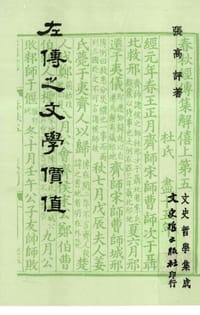 張高評著
左傳之文學價值
文史哲學集成
文史哲出版社印行
春秋經傳集解僖上第五
杜氏 盡
經元年春王正月齊師宋師曹師次于聶
北救邢 夏六月邢
遷于夷儀 齊師宋師曹師城邢
秋七月戊辰夫人姜
氏薨于夷齊人以歸
鄭伯
九月公
敗邾師于偃 冬十月壬午公子友帥師敗